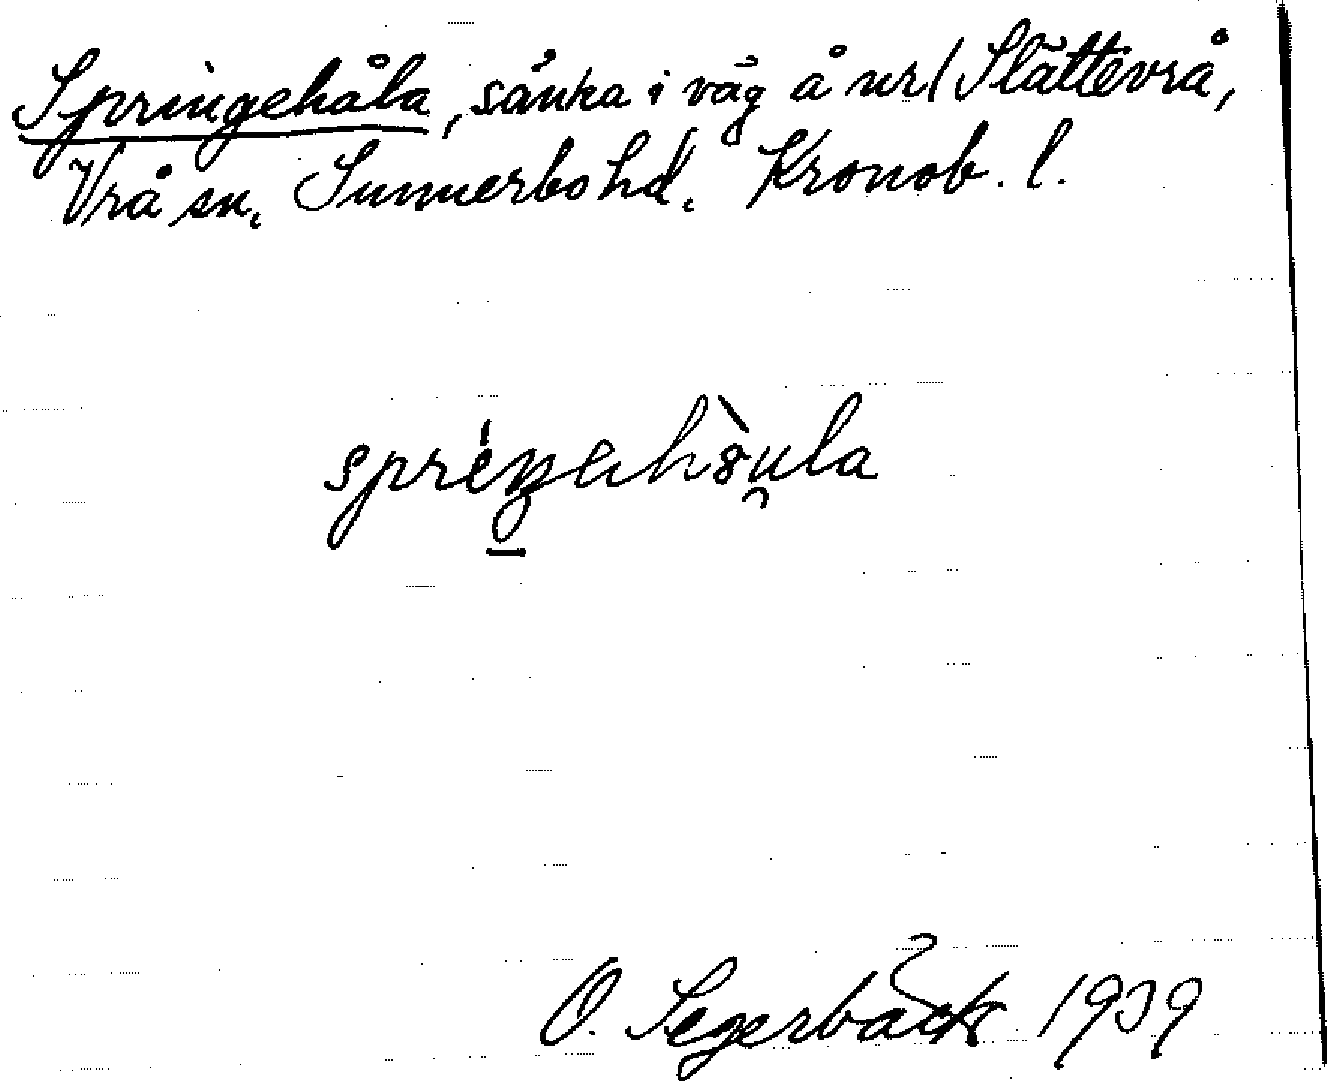 Springehåla, sänka i väg å nr 1 Slättevrå,
Vrå sn. Sunnerbo hd. Kronob. l.
spréŋahòu̯la
O. Segerbäck 1939